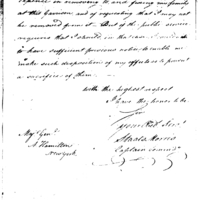 expence in removing to and fixing my family
at this Garrison and of requesting that I may not
be removed from it. But if the public service
requires that I should in the case I
to have sufficient previous notice to enable me
make such disposition of my affairs as to prevent
a sacrifice of them
with the highest respect
I have the honor to be
Your Obt Servt
Staats Morris
Captain comdg
Majr Genl
A Hamilton
New york